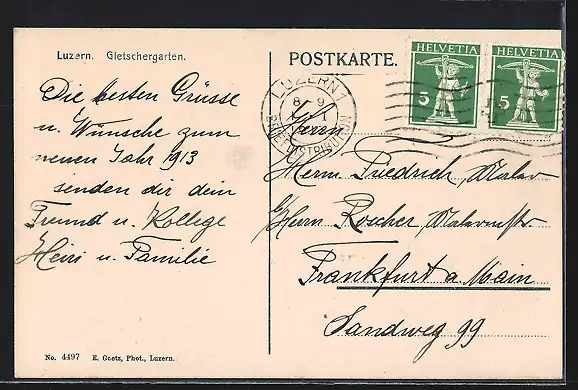 Luzern. Gletschergarten.
Die besten Grüsse
u. Wünsche zum
neuen Jahr 1913
senden dir dein
Freund u. Kollege
Heiri u. Familie
No. 4497 E. Goetz, Phot., Luzern.
POSTKARTE.
HELVETIA 5
HELVETIA 5
LUZERN 1
BRIEFDISTRIBUTION
Herrn
Herrn Friedrich, Maler
b/Herrn Roscher, Malermstr
Frankfurt a Main
Sandweg 99